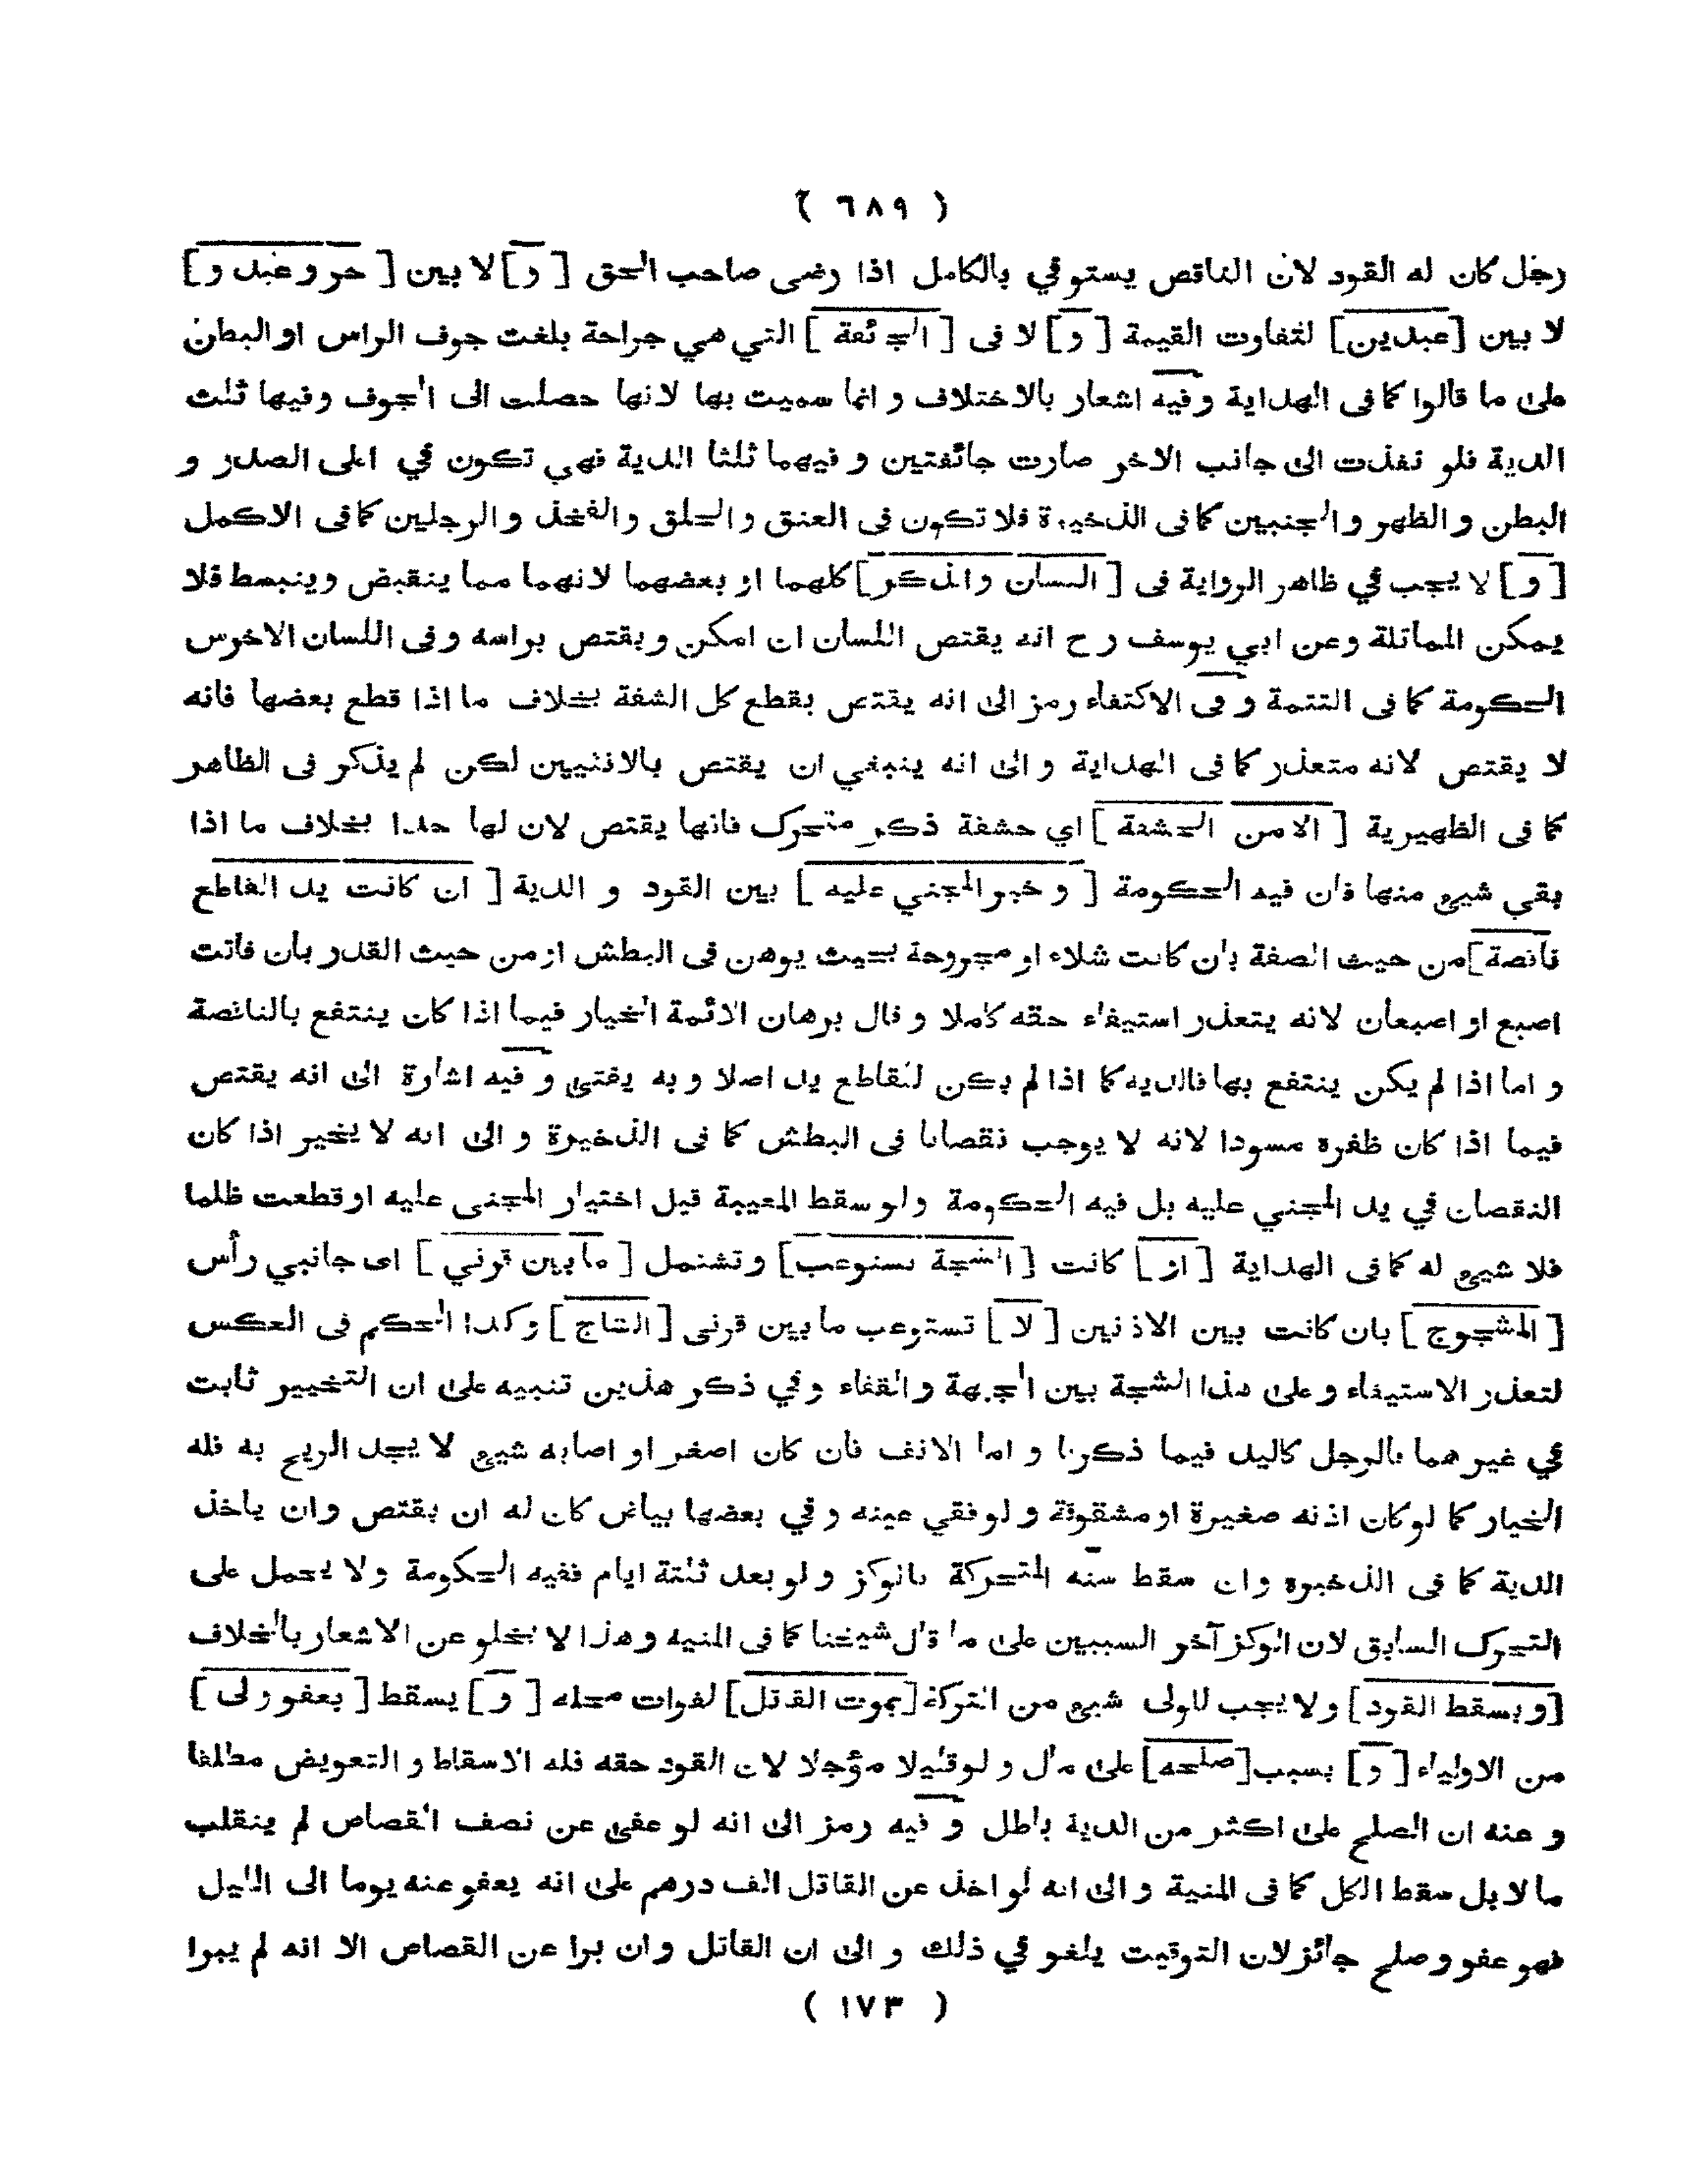 ( ٦٨٩ )
رجل كان له القود لان الناقص يستوفي بالكامل اذا رضى صاحب الحق [ و ] لا بين [ حر و عبد و ]
لا بين [ عبدين ] لتفاوت القيمة [ و ] لا فى [ الجائفة ] التي هي جراحة بلغت جوف الراس او البطن
على ما قالوا كما فى الهداية وفيه اشعار بالاختلاف و انما سميت بها لانها حصلت الى الجوف وفيها ثلث
الدية فلو نفذت الى جانب الاخر صارت جائفتين و فيهما ثلثا الدية فهي تكون في اعلى الصدر و
البطن و الظهر و الجنبين كما فى الذخيرة فلا تكون فى العنق و الحلق و الفخذ و الرجلين كما فى الاكمل
[ و ] لا يجب في ظاهر الرواية فى [ اللسان والذكر ] كلهما او بعضهما لانهما مما ينقبض وينبسط فلا
يمكن المماثلة وعن ابي يوسف رح انه يقتص اللسان ان امكن ويقتص براسه وفى اللسان الاخرس
الحكومة كما فى التتمة و فى الاكتفاء رمز الى انه يقتص بقطع كل الشفة بخلاف ما اذا قطع بعضها فانه
لا يقتص لانه متعذر كما فى الهداية و الى انه ينبغي ان يقتص بالانثيين لكن لم يذكر فى الظاهر
كما فى الظهيرية [ الا من الحشفة ] اي حشفة ذكر متحرك فانها يقتص لان لها حدا بخلاف ما اذا
بقي شيئ منها فان فيه الحكومة [ و خير المجني عليه ] بين القود و الدية [ ان كانت يد القاطع
ناقصة ] من حيث الصفة بان كانت شلاء او مجروحة بحيث يوهن فى البطش او من حيث القدر بان فاتت
اصبع او اصبعان لانه يتعذر استيفاء حقه كاملا و قال برهان الائمة الخيار فيما اذا كان ينتفع بالناقصة
و اما اذا لم يكن ينتفع بها فالديه كما اذا لم يكن للقاطع يد اصلا و به يفتى و فيه اشارة الى انه يقتص
فيما اذا كان ظفره مسودا لانه لا يوجب نقصانا فى البطش كما فى الذخيرة و الى انه لا يخير اذا كان
النقصان في يد المجني عليه بل فيه الحكومة ولو سقط المعيبة قبل اختيار المجنى عليه او قطعت ظلما
فلا شيئ له كما فى الهداية [ او ] كانت [ الشجة تستوعب ] و تشتمل [ ما بين قرني ] اى جانبي رأس
[ المشجوج ] بان كانت بين الاذنين [ لا ] تستوعب ما بين قرنى [ الشاج ] وكذا الحكم فى العكس
لتعذر الاستيفاء و على هذا الشجة بين الجبهة و القفاء وفي ذكر هذين تنبيه على ان التخيير ثابت
في غير هما بالرجل كاليد فيما ذكرنا و اما الانف فان كان اصغر او اصابه شيئ لا يجد الريح به فله
الخيار كما لو كان اذنه صغيرة او مشقوقة و لو فقي عينه وفي بعضها بياض كان له ان يقتص وان ياخذ
الدية كما فى الذخيره وان سقط سنه المتحركة بالوكز و لو بعد ثلثة ايام ففيه الحكومة ولا يحمل على
التحرك السابق لان الوكز آخر السببين على ما قال شيخنا كما فى المنيه و هذا لا يخلو عن الاشعار بالخلاف
[ و يسقط القود ] و لا يجب للولى شيئ من التركة [ بموت القاتل ] لفوات محله [ و ] يسقط [ بعفو ولى ]
من الاولياء [ و ] بسبب [ صلحه ] على مال و لو قليلا مؤجلا لان القود حقه فله الاسقاط و التعويض مطلقا
و عنه ان الصلح على اكثر من الدية باطل و فيه رمز الى انه لو عفى عن نصف القصاص لم ينقلب
ما لا بل سقط الكل كما فى المنية و الى انه لو اخذ عن القاتل الف درهم على انه يعفو عنه يوما الى الليل
فهو عفو و صلح جائز لان التوقيت يلغو في ذلك و الى ان القاتل وان برا عن القصاص الا انه لم يبرا
( ١٧٣ )